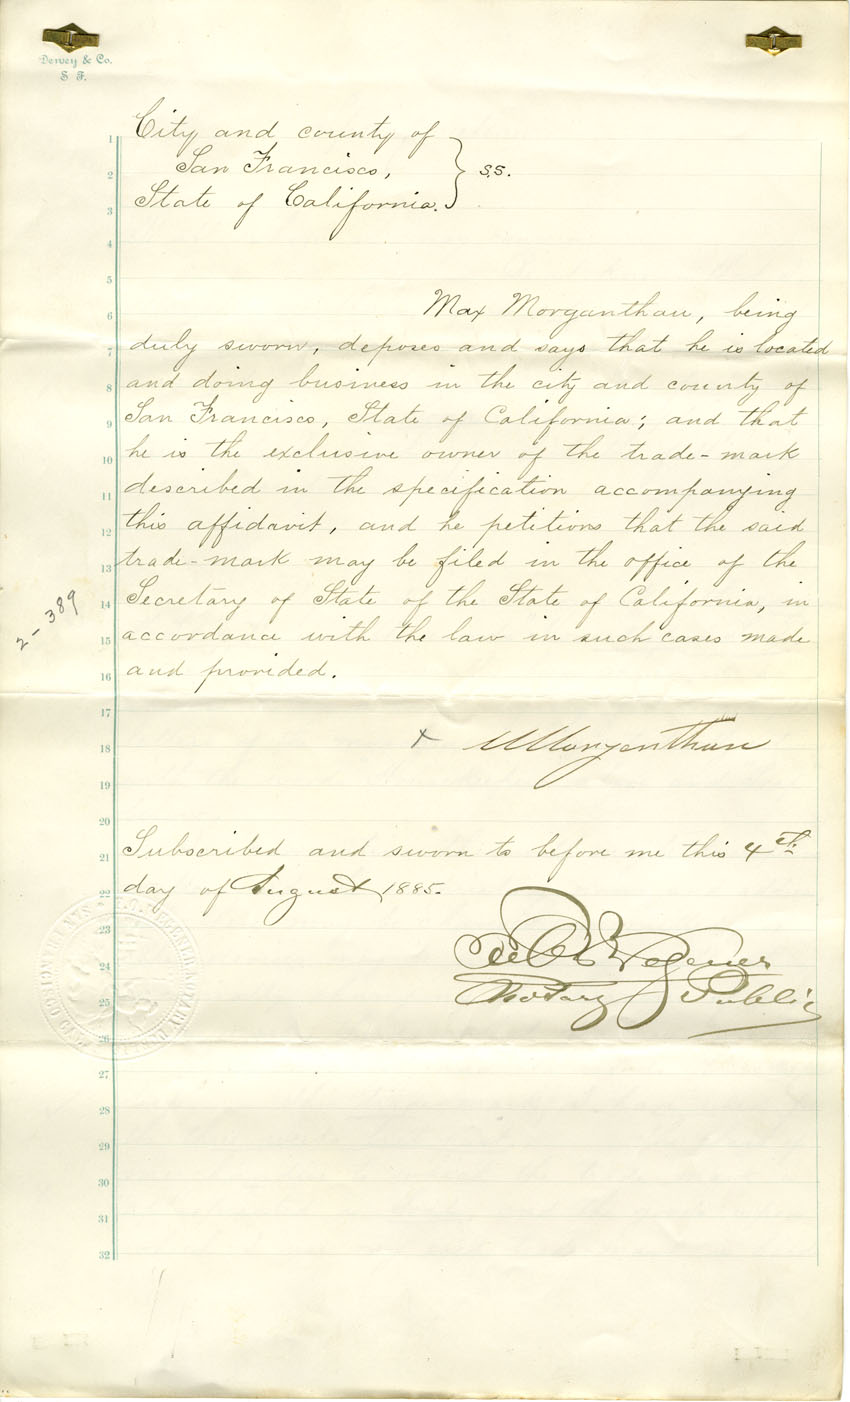 Dewey & Co.
S F.
City and county of
San Francisco,
State of California.
} s.s.
Max Morganthau, being
duly sworn, deposes and says that he is located
and doing business in the city and county of
San Francisco, State of California; and that
he is the exclusive owner of the trade-mark
described in the specification accompanying
this affidavit, and he petitions that the said
trade-mark may be filed in the office of the
Secretary of State of the State of California, in
accordance with the law in such cases made
and provided.
2-389
x M Morganthau
Subscribed and sworn to before me this 4th
day of August 1885.
Notary Public
1
2
3
4
5
6
7
8
9
10
11
12
13
14
15
16
17
18
19
20
21
22
23
24
25
26
27
28
29
30
31
32